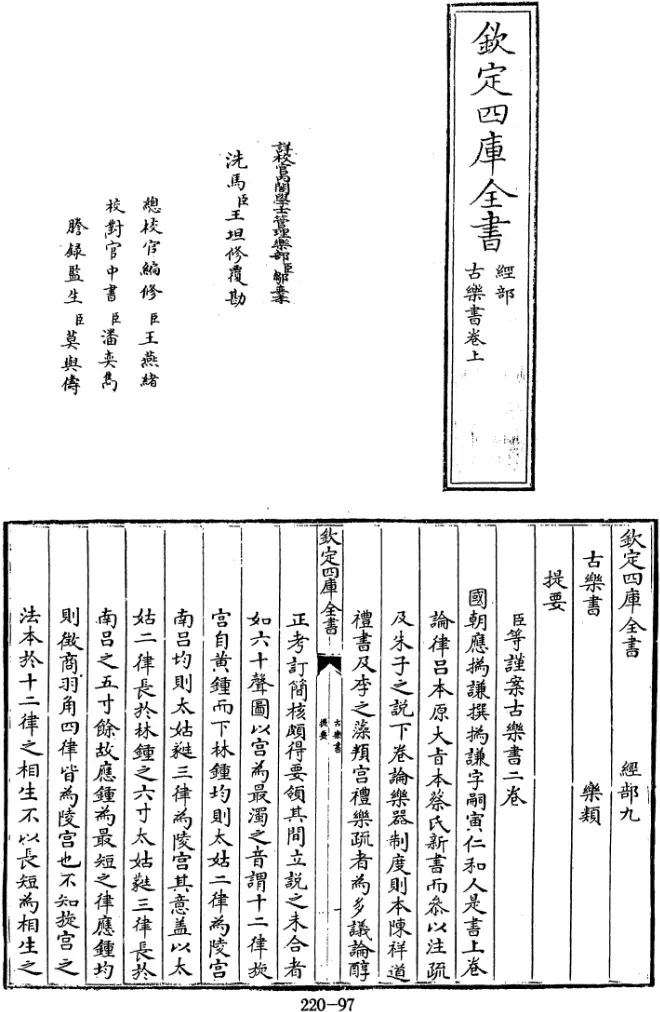 欽定四庫全書
經部
古樂書卷上
詳校官內閣學士管理樂部臣鄒奕孝
洗馬臣王坦修覆勘
總校官編修臣王燕緒
校對官中書臣潘奕雋
謄錄監生臣莫與儔
欽定四庫全書 經部九
古樂書 樂類
提要
臣等謹案古樂書二卷
國朝應撝謙撰撝謙字嗣寅仁和人是書上卷
論律呂本原大旨本蔡氏新書而叅以注疏
及朱子之說下卷論樂器制度則本陳祥道
禮書及李之藻頖宫禮樂疏者為多議論醇
欽定四庫全書
古樂書
提要
正考訂簡核頗得要領其間立説之未合者
如六十聲圖以宫為最濁之音謂十二律旋
宫自黄鍾而下林鍾均則太姑二律為陵宫
南呂均則太姑蕤三律為陵宫其意盖以太
姑二律長於林鍾之六寸太姑蕤三律長於
南呂之五寸餘故應鍾為最短之律應鍾均
則徵商羽角四律皆為陵宫也不知旋宫之
法本於十二律之相生不以長短為相生之
220-97